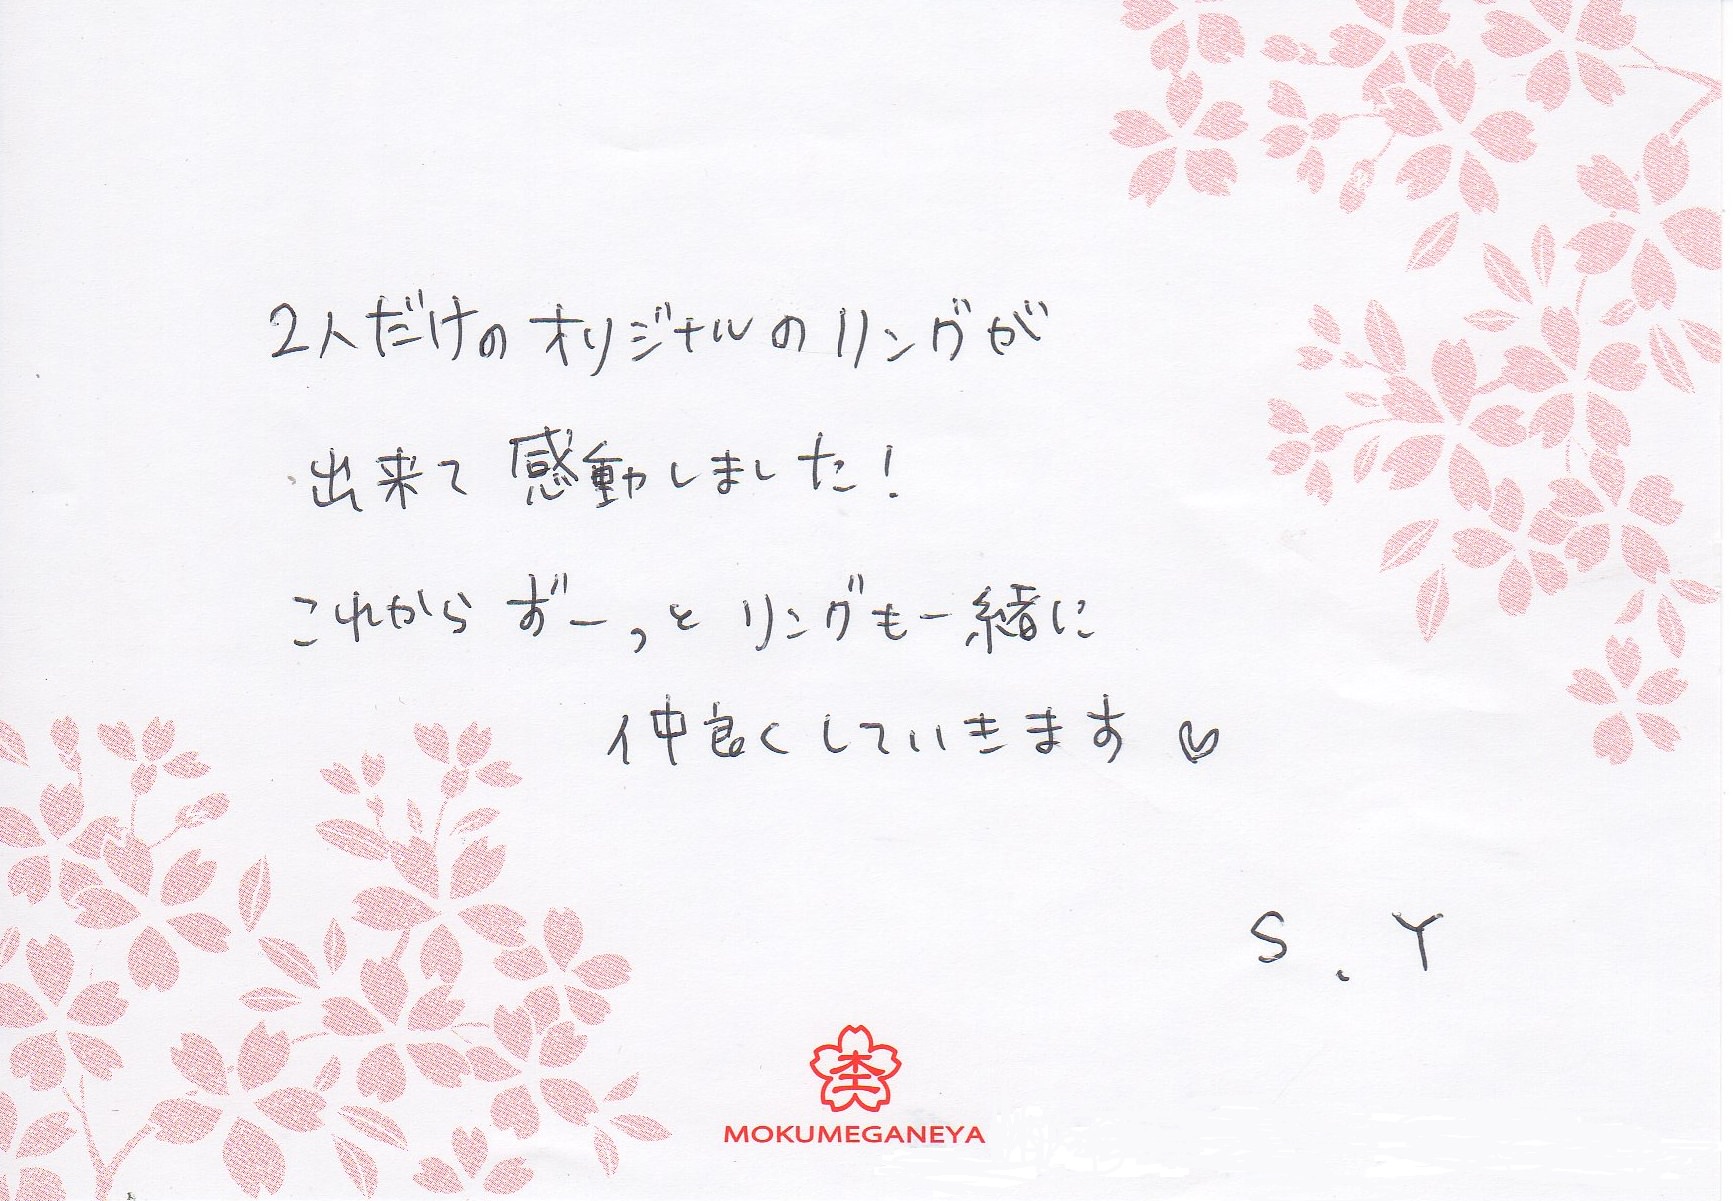 2人だけの オリジナルの リングが
出来て 感動しました!
これから ずーっと リングも一緒に
仲良くしていきます♡
S.Y
MOKUMEGANEYA